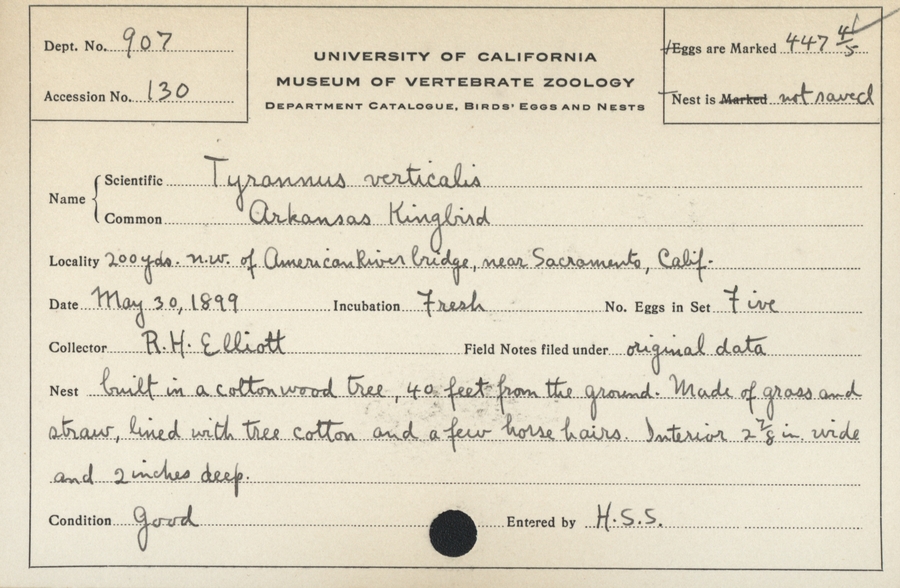 Dept. No. 907
Accession No. 130
UNIVERSITY OF CALIFORNIA
MUSEUM OF VERTEBRATE ZOOLOGY
DEPARTMENT CATALOGUE, BIRDS' EGGS AND NESTS
Eggs are Marked 447 4/5
Nest is Marked not saved
Name
Scientific Tyrannus verticalis
Common Arkansas Kingbird
Locality 200 yds. n.w. of American River bridge, near Sacramento, Calif.
Date May 30, 1899 Incubation Fresh No. Eggs in Set Five
Collector R. H. Elliott Field Notes filed under original data
Nest built in a cottonwood tree, 40 feet from the ground. Made of grass and
straw, lined with tree cotton and a few horse hairs. Interior 2 7/8 in. wide
and 2 inches deep.
Condition Good Entered by H.S.S.